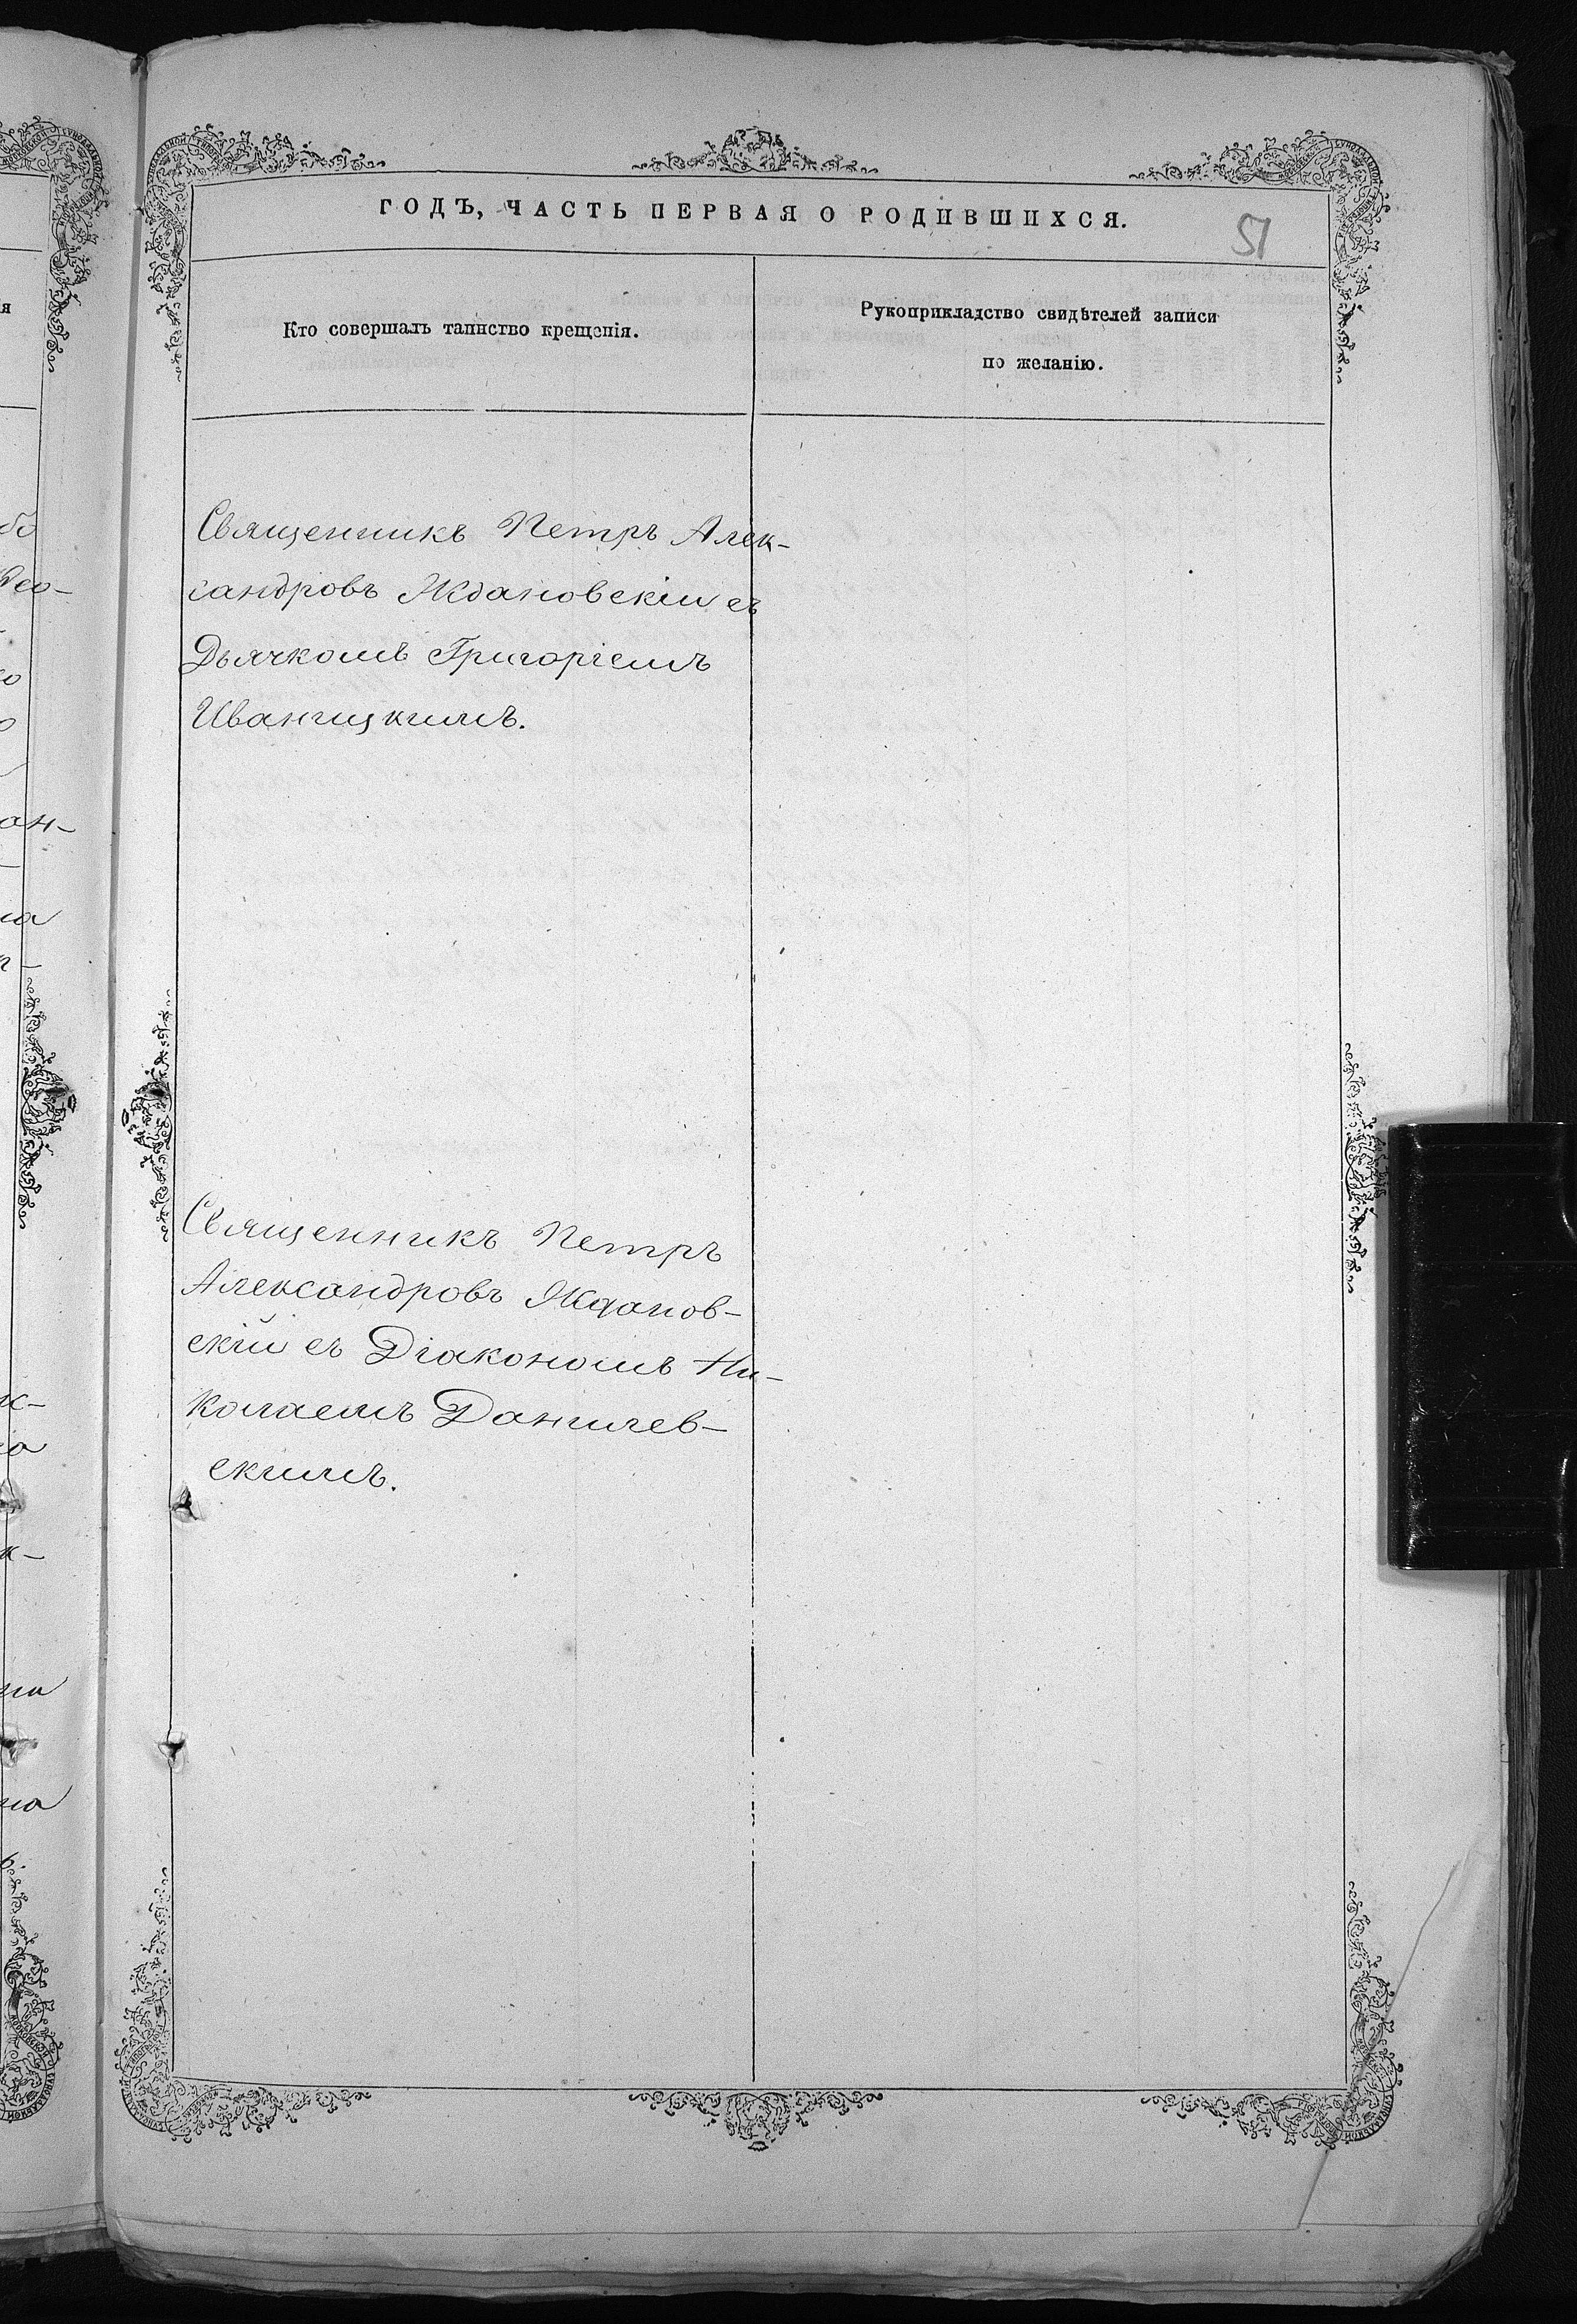 ГОДЪ, ЧАСТЬ ПЕРВАЯ О РОДИВШИХСЯ.
51
Кто совершалъ таинство крещенія.
Рукоприкладство свидѣтелей записи
по желанію.
Священникъ Петръ Алек-
сандровъ Ждановскій съ
Дьячкомъ Григоріемъ
Иваницкимъ.
Священникъ Петръ
Александровъ Жданов-
скій съ Діакономъ Ни-
колаемъ Данилев-
скимъ.